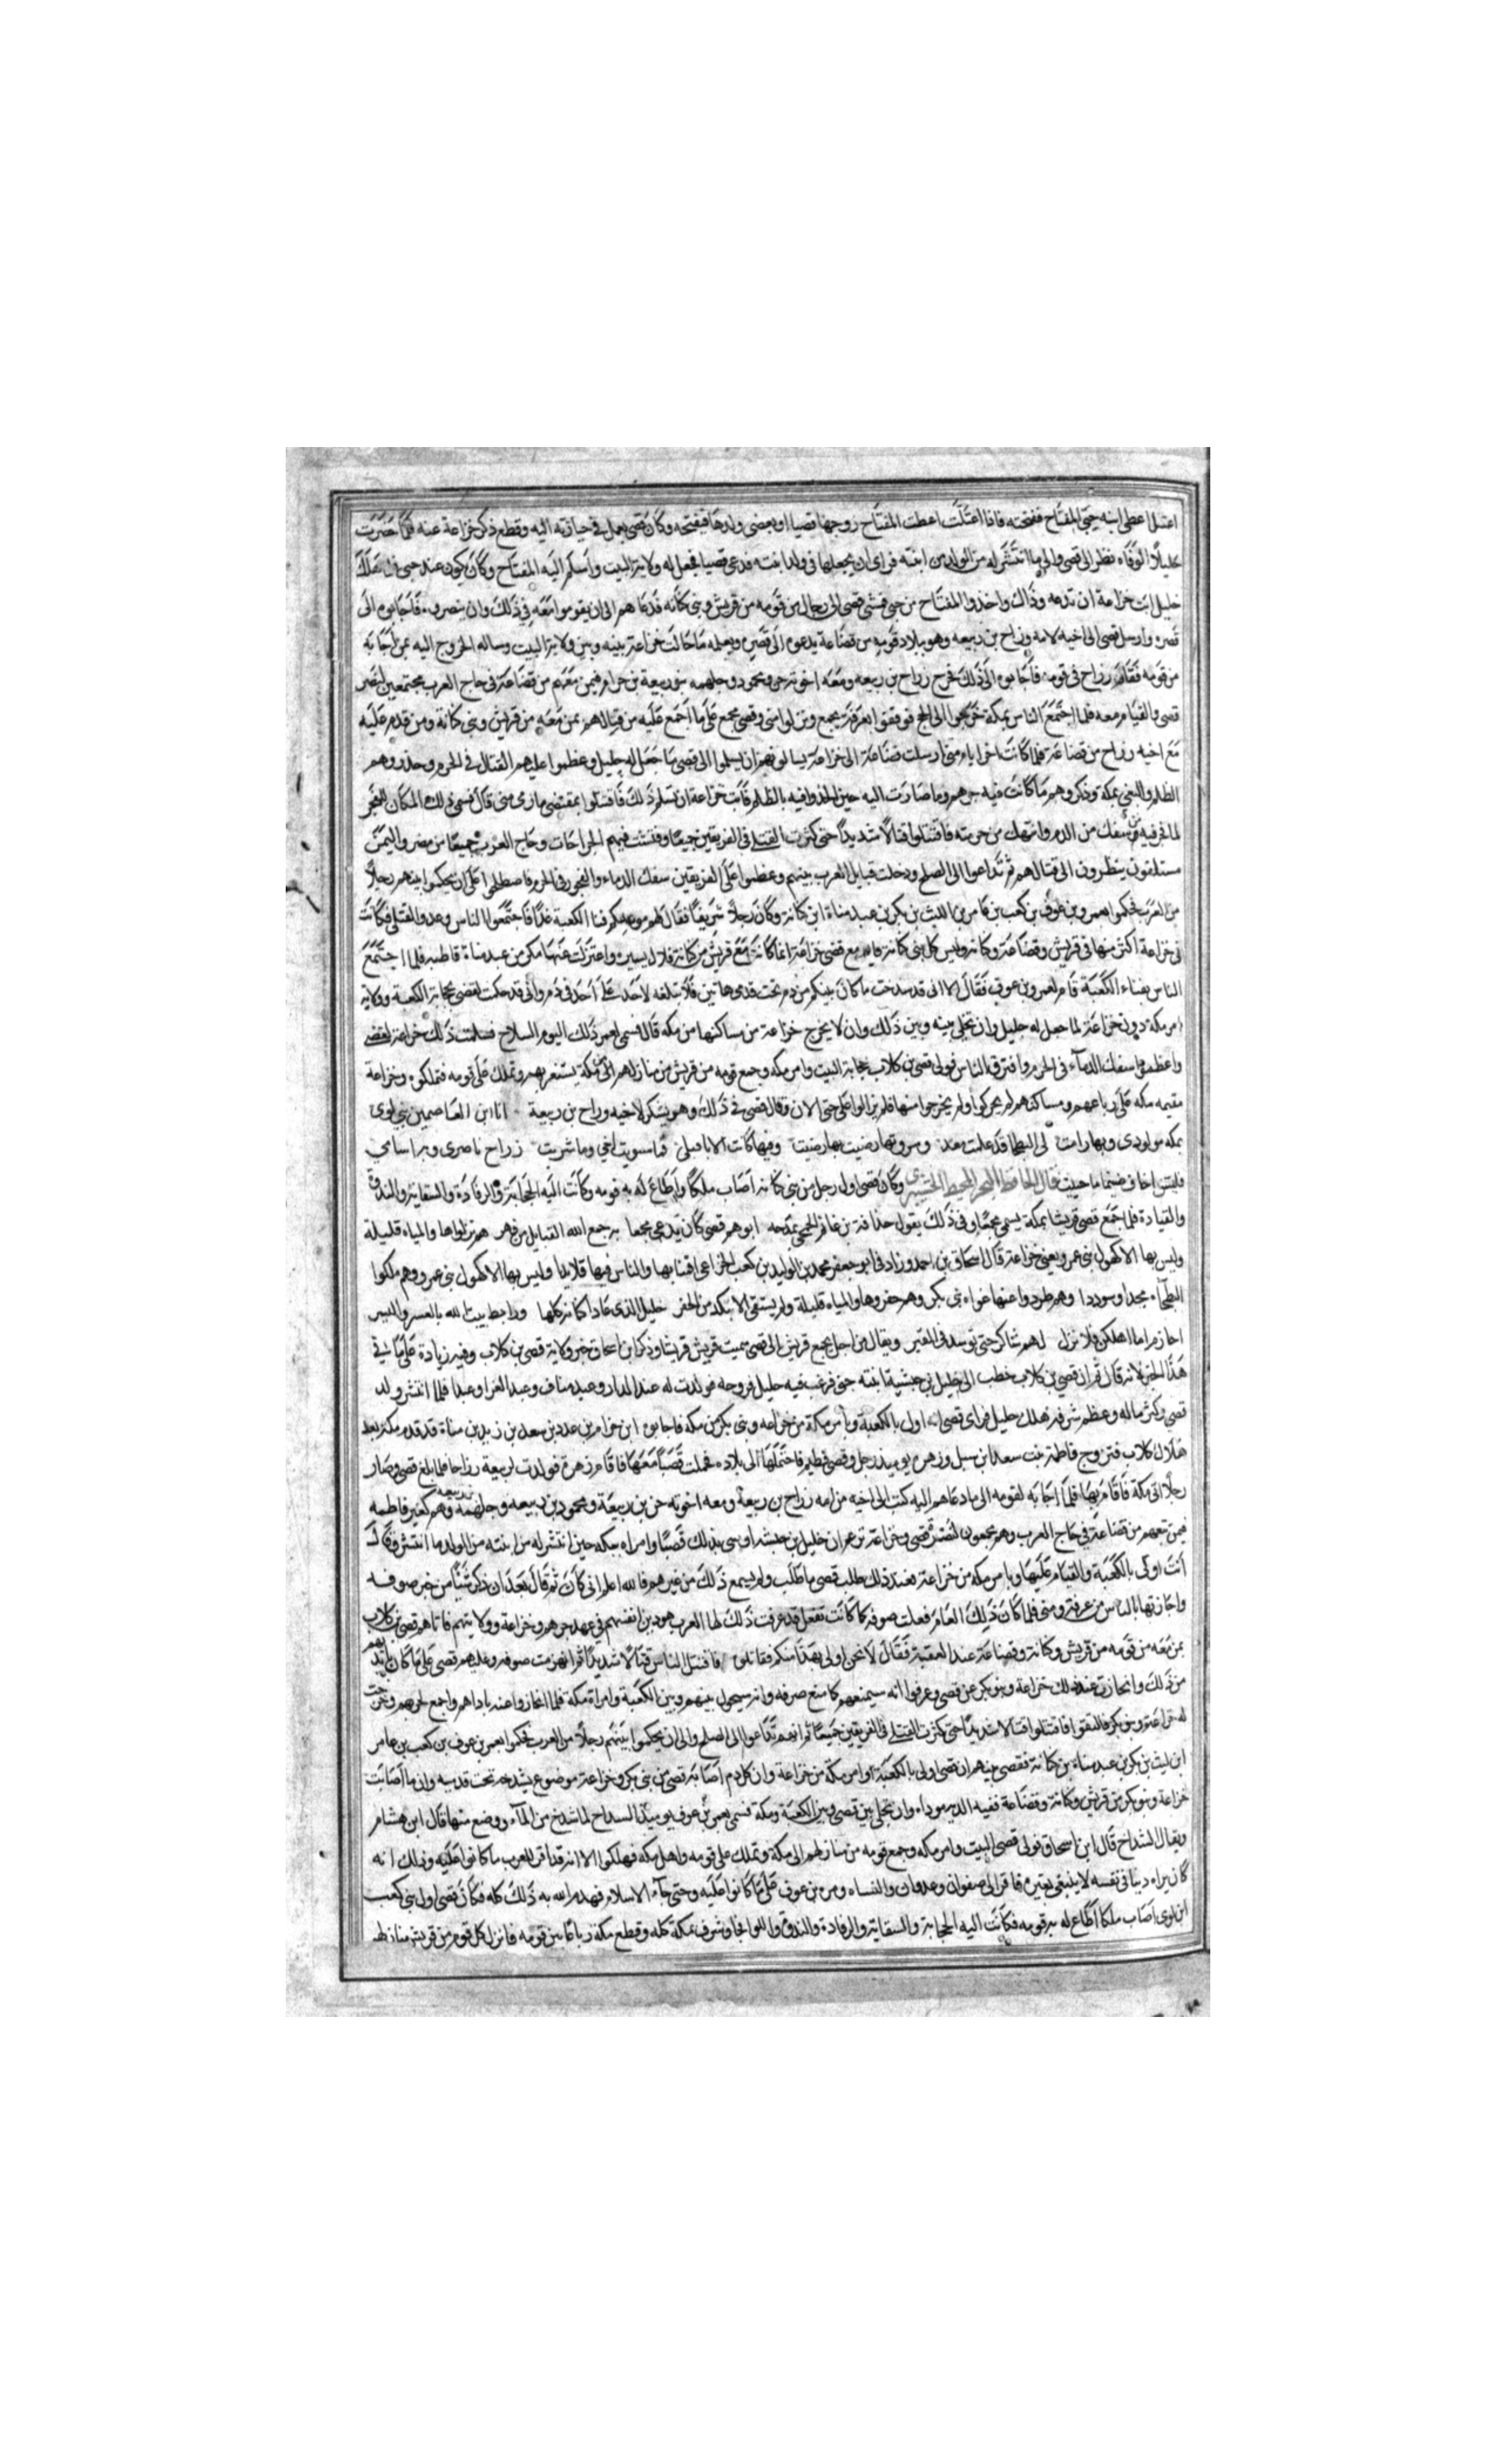 اعتل اعطى ابنته حبى المفتاح ففتحته فاذا اعتلت اعطت المفتاح زوجها قصيا او بعض ولدها فيفتحه وكان قصى يعمل في حيازته اليه وقطع ذكر خزاعة عنه فلما حضرت
حليلا الوفاه نظر الى قصى والى ما انتشر له من الولد من ابنته فراى ان يجعلها فى ولد ابنته فدعى قصيا فجعل له ولاية البيت واسلم اليه المفتاح وكان يكون عند حبى فلما هلك
حليل ابت خزاعة ان تدعه وذاك واخذوا المفتاح من حبى فمشى قصى الى رجال من قومه من قريش وبنى كنانه فدعاهم الى ان يقوموا معه في ذلك وان ينصروه فاجابوه الى
نصره وارسل قصى الى اخيه لامه رزاح بن ربيعه وهو ببلاد قومه من قضاعة يدعوه الى نصره ويعلمه ما حالت خزاعة بينه وبين ولاية البيت وساله الخروج اليه بمن اجابه
من قومه فقام رزاح فى قومه فاجابوه الى ذلك فخرج رزاح بن ربيعه ومعه اخوته حن ومحمود وجلهمه بنو ربيعة بن حرام فيمن معهم من قضاعة فى حاج العرب مجتمعين لنصر
قصى والقيام معه فلما اجتمع الناس بمكة خرجوا الى الحج فوقفوا بعرفة وبجمع ونزلوا منى وقصى مجمع على ما اجمع عليه من قتالهم بمن معه من قريش وبنى كنانة ومن قدم عليه
مع اخيه رزاح من قضاعة فلما كانت اخر ايام منى ارسلت قضاعة الى خزاعة يسالونهم ان يسلموا الى قصى ما جعل له حليل وعظموا عليهم القتال فى الحرم وحذروهم
الظلم والبغى بمكة وذكروهم ما كانت فيه جرهم وما صارت اليه حين الحدوا فيه بالظلم فابت خزاعة ان تسلم ذلك فاقتتلوا بمفضى مازمى منى قال فسمى ذلك المكان المفجر
لما فجر فيه وسفك من الدم وانتهك من حرمته فاقتتلوا قتالا شديدا حتى كثرت القتلى فى الفريقين جميعا وفشت فيهم الجراحات وحاج العرب جميعا من مضر واليمن
مستكفون ينظرون الى قتالهم ثم تداعوا الى الصلح ودخلت قبايل العرب بينهم وعظموا على الفريقين سفك الدماء والفجور فى الحرم فاصطلحوا على ان يحكموا بينهم رجلا
من العرب فحكموا يعمر بن عوف بن كعب بن عامر بن الليث بن بكر بن عبد مناة ابن كنانة وكان رجلا شريفا فقال لهم موعدكم فناء الكعبة غدا فاجتمعوا الناس وعدوا القتلى فكانت
فى خزاعة اكثر منها فى قريش وقضاعة وكنانة وليس كل بنى كنانة قاتل مع قصى خزاعة انما كانت مع قريش من كنانة قلال يسير واعتزلت عنها بكر بن عبد مناة قاطبه فلما اجتمع
الناس بفناء الكعبة قام يعمر بن عوف فقال الا انى قد شدخت ما كان بينكم من دم تحت قدمى هاتين فلا تبلغه لاحد على احد فى دم وانى قد حكمت لقصى بحجابة الكعبة وولاية
امر مكة دون خزاعة لما جعل له حليل وان تخلى بينه وبين ذلك وان لا يخرج خزاعة من مساكنها من مكة قال فسمى يعمر ذلك اليوم السلاح فسلمت ذلك خزاعة لقصى
واعظموا سفك الدماء فى الحرم وافترق الناس فولى قصى بن كلاب حجابة البيت وامر مكه وجمع قومه من قريش من منازلهم الى مكة يستنصر بهم وتملك على قومه فملكوه وخزاعة
مقيمه بمكه على رباعهم ومساكنهم لم يحركوا ولم يخرجوا منها فلم يزالوا على حتى الان وقال قصى في ذلك وهو يشكر لاخيه رزاح بن ربيعة انا ابن العاصمين بنى لوى
بمكه مولدى وبها رابت لى البطحا قد علمت معد ومروتها رضيت بها رضيت وفيها كانت الاباء قبلى فما سويت اخى وما شريت رزاح ناصرى وبه اسامى
فلست اخاف ضيما ما حييت قال الحافظ وكان قصى اول رجل من بنى كنانه اصاب ملكا واطاع له به قومه وكانت اليه الحجابة والرفادة والسقاية والندوة
والقيادة فلما جمع قصى قريشا بمكة سمى مجمعا وفى ذلك يقول حذافة بن غانم الجمحى يمدحه ابوهم قصى كان يدعى مجمعا به جمع الله القبايل من فهر هم نزلواها والمياه قليلة
وليس بها الا كهول بنى عمرو يعنى خزاعة قال اسحاق بن احمد وزادنى ابو جعفر محمد بن الوليد بن كعب الخزاعى اقنا بها والناس فيها قلايل وليس بها الا كهول بنى عمرو وهم ملكوا
البطحآء مجدا وسوددا وهم طردوا عنها غواة بنى بكر وهم حفروها والمياه قليلة ولم يستقى الا بنكد من الحفر حليل الذى عادا كنانة كلها ورابط بيت الله بالعسر واليسر
احازم اما اهلكن فلا تزل لهم شاكرا حتى توسد فى القبر ويقال من اجل تجمع قريش الى قصى سميت قريش قريشا وذكر ابن اسحاق خبر ولاية قصى بن كلاب وفيه زيادة على ما في
هذا الخبر لانه قال ثم ان قصى بن كلاب خطب الى حليل بن حبشية ابنته حبى فرغب فيه حليل فزوجه فولدت له عبد الدار وعبد مناف وعبد العزا وعبدا فلما انتشر ولد
قصى وكثر ماله وعظم شرفه هلك حليل فراى قصى انه اولى بالكعبة وبامر مكة من خزاعه وبنى بكر من مكه فاجابوه ابن حرام بن عدد بن سعد بن زيد بن مناة قد قدم مكة بعد
هلاك كلاب فتزوج فاطمة بنت سعد ابن سيل وزهرة يوميذ رجل وقصى فطيم فاحتملها الى بلاده فحملت قصيا معها فاقام زهرة فولدت لربيعة رزاحا فلما بلغ قصى وصار
رجلا اتى مكة فاقام بها فلما اجابه لقومه الى ما دعاهم اليه كتب الى اخيه من امه رزاح بن ربيعة ومعه اخوته حن بن ربيعة ومحمود بن ربيعه وجلهمة بن ربيعه وهم لغير فاطمه
فيمن تبعهم من قضاعة فى حاج العرب وهم مجمعون لنصرة قصى وخزاعة تزعم ان حليل بن حبشه اوصى بذلك قصيا وامره بمكه حين انتشر له من ابنته من الولد ما انتشر وقال
انت اولى بالكعبة والقيام عليها وبامر مكه من خزاعة فعند ذلك طلب قصى ما طلب ولم يسمع ذلك من غيرهم فالله اعلم اى كان ثم قال بعد ان ذكر شيئا من خبر صوفه
واجازتها بالناس من عرفة ومنى فلما كان ذلك العام فعلت صوفه كما كانت تفعل قد عرفت ذلك لها العرب هو دين انفسهم فى عهد جرهم وخزاعة وولايتهم فاتاهم قصى بن كلاب
بمن معه من قومه من قريش وكنانة وقضاعة عند العقبة فقال لا نحن اولى بهذا منكم فقاتلوه فاقتتل الناس قتالا شديدا ثم انهزمت صوفه وغلبهم قصى على ما كان بايديهم
من ذلك وانحازت عند ذلك خزاعة وبنو بكر عن قصى وعرفوا انه سيمنعهم كما منع صوفه وانه سيحول بينهم وبين الكعبة وامراة مكة فلما انحازوا عنه باداهم واجمع لحربهم وخرجت
له خزاعة وبنو بكر فالتقوا فاقتتلوا قتالا شديدا حتى كثرت القتلى فى الفريقين جميعا ثم انهم تداعوا الى الصلح والى ان يحكموا بينهم رجلا من العرب فحكموا يعمر بن عوف بن كعب بن عامر
ابن ليث بن بكر بن عبد مناة بن كنانة فقضى بينهم ان قصى اولى بالكعبة وامر مكة من خزاعة وان كل دم اصابه قصى من بنى بكر وخزاعة موضوع يشدخه تحت قدميه وان ما اصابت
خزاعة وبنو بكر من قريش وكنانة وقضاعة ففيه الدية موداه وان يخلى بين قصى وبين الكعبة ومكة فسمى يعمر بن عوف يوميذ الشداخ لما شدخ من الدمآء ووضع منها قال ابن هشام
ويقال الشداخ قال ابن اسحاق فولى قصى البيت وامر مكه وجمع قومه من منازلهم الى مكة وتملك على قومه واهل مكه فملكوا الا انه قد اقر للعرب ما كانوا عليه وذلك انه
كان يراه دينا فى نفسه لا ينبغى تغييره فاقر ال صفوان وعدوان والنساه ومره بن عوف على ما كانوا عليه وحتى جآء الاسلام فهدم الله به ذلك كله فكان قصى اول بنى كعب
ابن لوى اصاب ملكا اطاع له به قومه فكانت اليه الحجابة والسقاية والرفادة والندوة واللوا فحاز شرف مكة كله وقطع مكة رباعا بين قومه فانزل كل قوم من قريش منازلهم